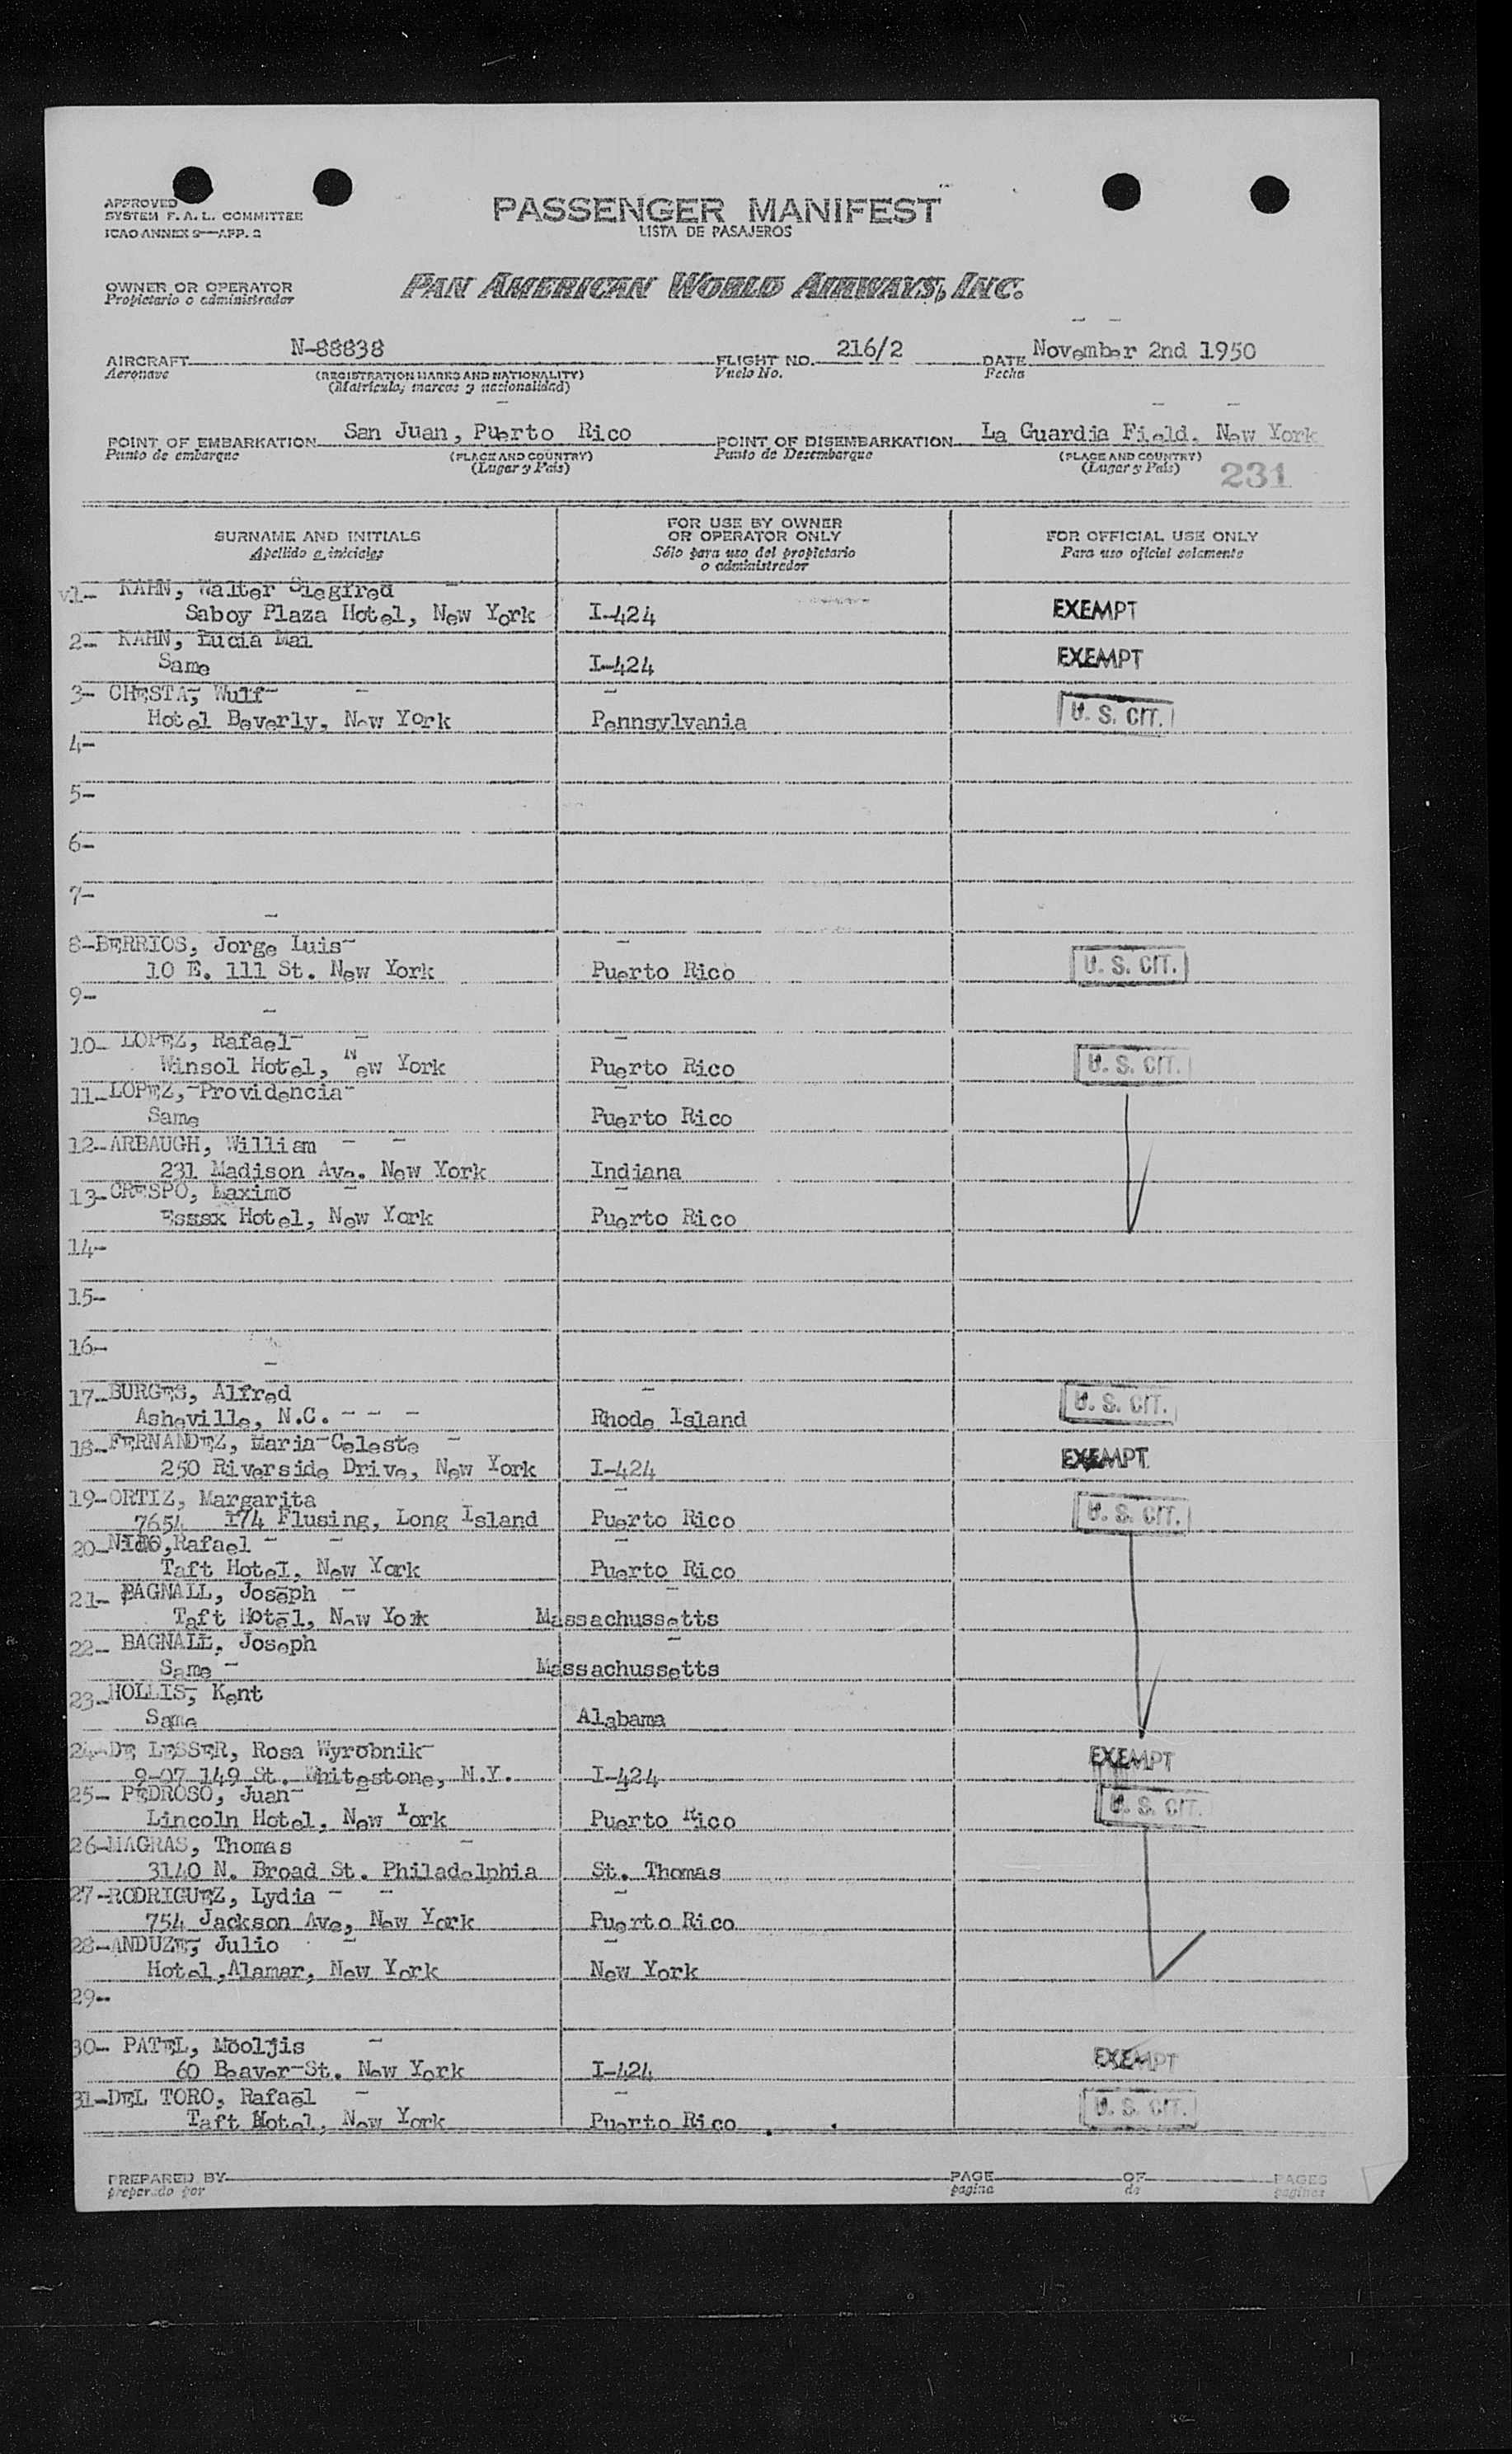 APPROVED
SYSTEM F. A. L. COMMITTEE
ICAO ANNEX 9—APP. 2
PASSENGER MANIFEST
LISTA DE PASAJEROS
OWNER OR OPERATOR
Propietario o administrador
PAN AMERICAN WORLD AIRWAYS, INC.
AIRCRAFT N-88838 FLIGHT NO. 216/2 DATE November 2nd 1950
Aeronave (REGISTRATION MARKS AND NATIONALITY) Vuelo No. Fecha
(Matrícula, marcas y nacionalidad)
POINT OF EMBARKATION San Juan, Puerto Rico POINT OF DISEMBARKATION La Guardia Field, New York
Punto de embarque (PLACE AND COUNTRY) Punto de Desembarque (PLACE AND COUNTRY)
(Lugar y País) (Lugar y País) 231
SURNAME AND INITIALS
Apellido e iniciales
FOR USE BY OWNER
OR OPERATOR ONLY
Sólo para uso del propietario
o administrador
FOR OFFICIAL USE ONLY
Para uso oficial solamente
1- KAHN, Walter Siegfred
Saboy Plaza Hotel, New York I-424 EXEMPT
2- KAHN, Lucia Mai
Same I-424 EXEMPT
3- CHESTA, Wulf
Hotel Beverly, New York Pennsylvania U. S. CIT.
4-
5-
6-
7-
8-BERRIOS, Jorge Luis
10 E. 111 St. New York Puerto Rico U. S. CIT.
9-
10- LOPEZ, Rafael
Winsol Hotel, New York Puerto Rico U. S. CIT.
11-LOPEZ, Providencia
Same Puerto Rico
12-ARBAUGH, William
231 Madison Ave. New York Indiana
13-CRESPO, Maximo
Essex Hotel, New York Puerto Rico
14-
15-
16-
17-BURGES, Alfred
Asheville, N.C. Rhode Island U. S. CIT.
18-FERNANDEZ, Maria Celeste
250 Riverside Drive, New York I-424 EXEMPT
19-ORTIZ, Margarita
7654 174 Flusing, Long Island Puerto Rico U. S. CIT.
20-NIDO,Rafael
Taft Hotel, New York Puerto Rico
21- BAGNALL, Joseph
Taft Hotel, New York Massachussetts
22- BAGNALL, Joseph
Same Massachussetts
23-HOLLIS, Kent
Same Alabama
24-DE LESSER, Rosa Wyrobnik
9-07 149 St. Whitestone, N.Y. I-424 EXEMPT
25- PEDROSO, Juan
Lincoln Hotel, New York Puerto Rico U. S. CIT.
26-MAGRAS, Thomas
3140 N. Broad St. Philadelphia St. Thomas
27-RODRIGUEZ, Lydia
754 Jackson Ave, New York Puerto Rico
28-ANDUZE, Julio
Hotel,Alamar, New York New York
29-
30- PATEL, Mooljis
60 Beaver St. New York I-424 EXEMPT
31-DEL TORO, Rafael
Taft Hotel, New York Puerto Rico U. S. CIT.
PREPARED BY PAGE OF PAGES
preparado por pagina de paginas